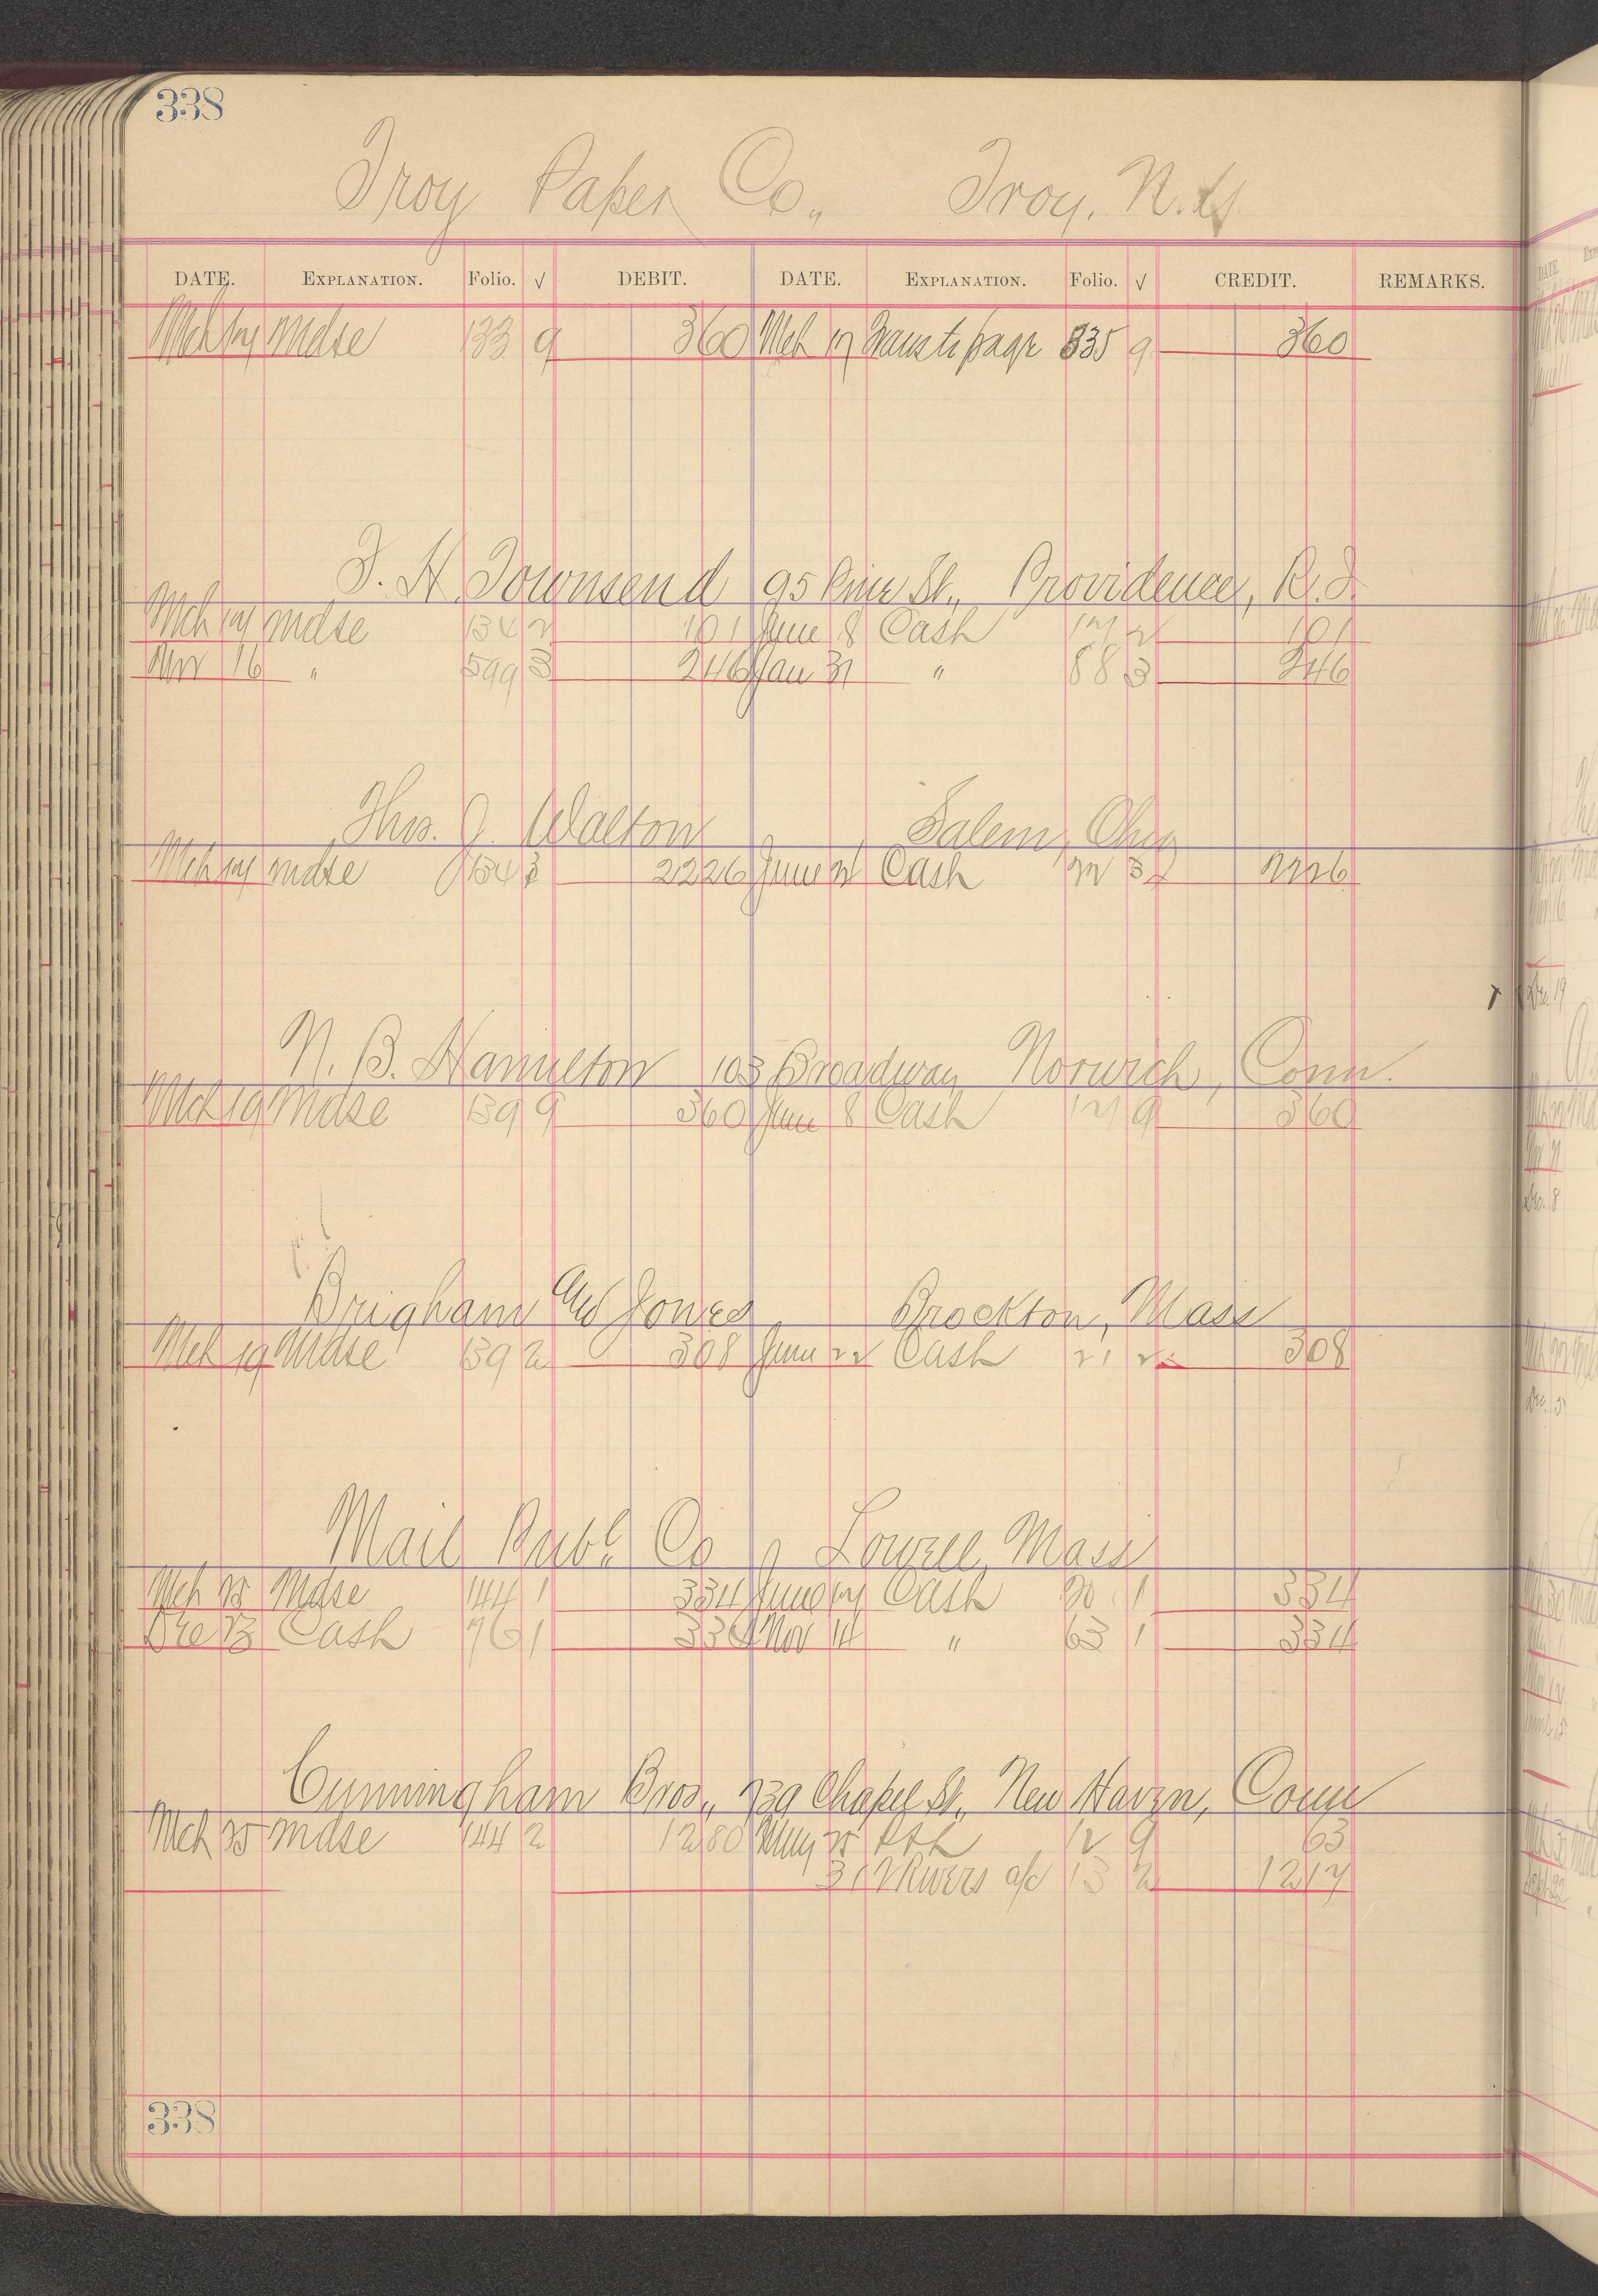 338
Troy Paper Co., Troy, N.Y.
DATE. EXPLANATION. Folio. √ DEBIT. DATE. EXPLANATION. Folio. √ CREDIT. REMARKS.
Mch 17 Mdse 133 9 360 Mch 17 Trans to page 335 9 360
T. H. Townsend 95 Pine St., Providence, R.I.
Mch 17 Mdse 134 2 101 June 8 Cash 17 2 101
Nov 16 " 599 3 246 Jan 31 " 88 3 246
Thos. J. Walton Salem, Ohio
Mch 17 Mdse 134 2226 June Cash 2226
N. B. Hamilton 103 Broadway Norwich, Conn.
Mch 19 Mdse 139 9 360 June 8 Cash 17 9 360
Brigham and Jones Brockton, Mass
Mch 19 Mdse 139 2 308 June 22 Cash 21 2 308
Mail Publ. Co Lowell, Mass
Mch 25 Mdse 144 1 334 June 17 Cash 20 1 334
Dec 23 Cash 76 1 334 Nov 14 " 63 1 334
Cunningham Bros., 739 Chapel St., New Haven, Conn
Mch 25 Mdse 144 2 12 80 May 25 12 9 63
31 a/c 13 2 12 17
338